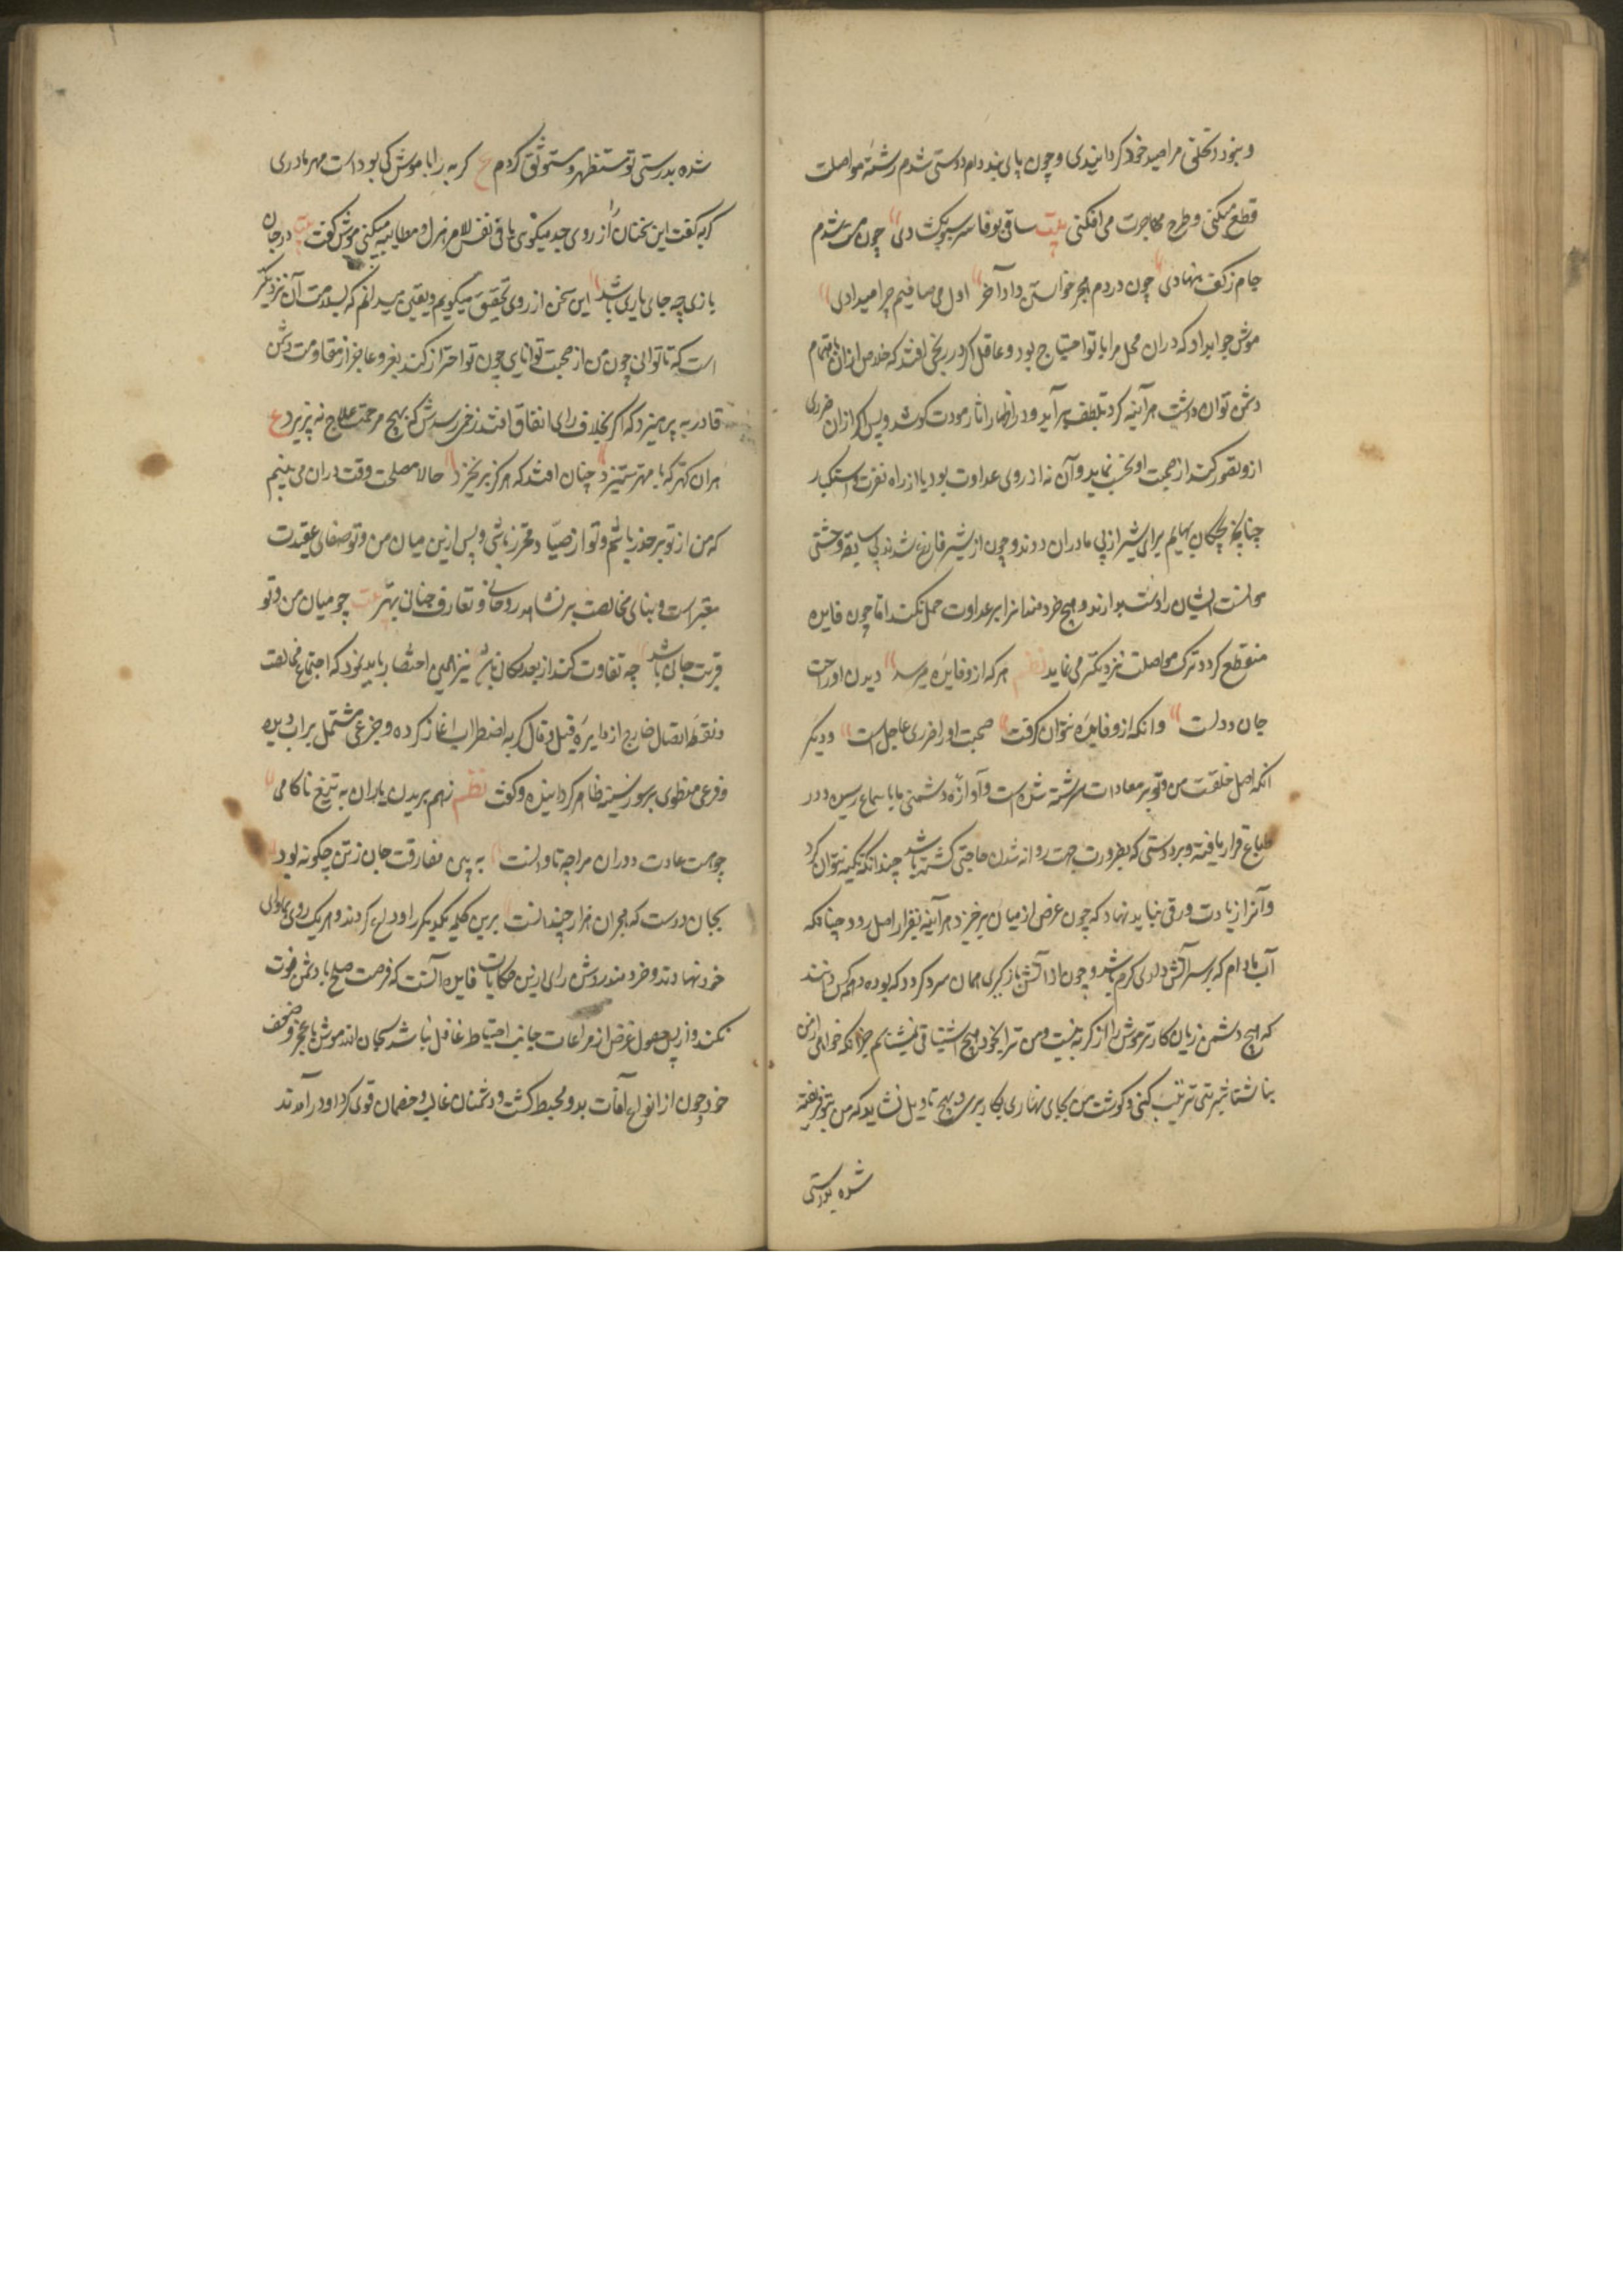 و بنود و تکلفی مرا صید خود گردانیدی و چون پای بند دام دوستی شدم رشته مواصلت
قطع میکنی و طرح مهاجرت می افکنی بیت ساقی بوفا سر سبو بگشادی چون مست شدم
جام ز کف بنهادی چون دردم هجر خواستی داد آخر اول می صافیم چرا میدادی
موش جواب داد که دران محل مرا با تو احتیاج بود و عاقل اگر در رنجی افتد که خلاص ازان باهتمام
دشمن توان داشت هر آینه گرد تلطف بر آید و در اظهار آثار مودت کوشد و پس اگر ازان ضرری
ازو تصور کند از صحبت او تجنب نماید و آن نه از روی عداوت بود یا از راه نفرت و استکبار
چنانچه بچگان بهایم برای شیر از پی مادران دوند و چون از شیر فارغ شدند بی سابقه وحشتی
موانست ایشان را دست بدارند و هیچ خردمند انرا بر عداوت حمل نکند اما چون فایده
منقطع گردد ترک مواصلت نزدیکتر می نماید نظم هر که ازو فایده میرسد دیدن او راحت
جان و دلست وانکه ازو فایده نتوان گرفت صحبت او را ضرری عاجلست و دیگر
انکه اصل خلقت من و تو بر معادات سرشته شده است و آوازه دشمنی ما باسماع رسیده و در
طباع قرار یافته و بر دوستی که بضرورت جهت روانه شدن حاجتی گشته باشد چندانکه تکیه نتوان کرد
و آنرا زیادت ورقی نباید نهاد که چون غرض از میان برخیزد هر آینه بقرار اصل رود چنانکه
آب مادام که بر سر آتش داری گرم باشد و چون از آتش باز گیری همان سرد گردد که بوده و همه کس دانند
که هیچ دشمن زیان کارتر موش را از گربه نیست و من ترا بخود هیچ اشتیاقی نمیشناسم جز آنکه خواهی از من
بناشتا شربتی ترتیب کنی و گوشت من بجای نهاری بکار بری و بهیچ تاویل نشاید که من بتو فریفته
شده بدوستی
شده بدرستی تو مستظهر و مستوثق گردم ع گربه را با موش کی بوداست مهر مادری
گربه گفت این سخنان را از روی جد میگوئی یا فی نفس الامر هزل و مطایبه میکنی موش گفت بیت در جان
بازی چه جای یاری باشد این سخن از روی تحقیق میگویم و یقین میدانم که بسلامت آن نزدیکتر
است که ناتوانی چون من از صحبت توانایی چون تو احتراز کند بغر و عاجز از مقاومت دشمن
قادر به پرهیزد که اگر بخلاف رای اتفاق افتد زخمی رسدش که بهیچ مرهمت علاج نه پزیرد ع
هران کهتر که با مهتر ستیزد چنان افتد که هرگز بر نخیزد حالا مصلحت وقت دران می بینم
که من از تو بر حذر باشم و تو از صیاد محترز باشی و پس ازین میان من و تو صفای عقیدت
معتبر است و بنای مخالصت بر نشاهد روحانی و تعارف جنانی بهتر بیت چو میان من و تو
قربت جانی باشد چه تفاوت کند از بعد مکانی باشد نیز همین اختصار باید نمود که اجتماع مخالصت
و نقطه اتصال خارج از دایره قیل و قال گربه اضطراب آغاز کرده و جزعی مشتمل بر آب دیده
و فرعی منطوی بر سوز سینه ظاهر گردانیده و گفت نظم زهم بریدن یاران به تیغ ناکامی
چو هست عادت دوران مرا چه تاوانست به بین مفارقت جان ز تن چگونه بود
بجان دوست که هجران هزار چندانست برین کلمه یکدیگر را وداع کردند و هر یک روی بماوای
خود نهادند و خردمند روشن رای را زین حکایت فایده آنست که فرصت صلح با دشمن فوت
نکند و از پس حصول غرض از مراعات جانب احتیاط غافل نباشد سبحان الله موش با عجز و ضعف
خود چون از انواع آفات بدو محیط گشت و دشمنان غالب و خصمان قوی گرد او در آمدند